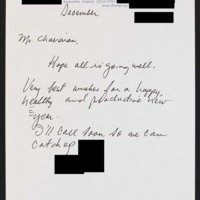 December
Mr Chairman,
Hope all is going well.
Very best wishes for a happy,
healthy and productive new
year.
I'll call soon so we can
catch up